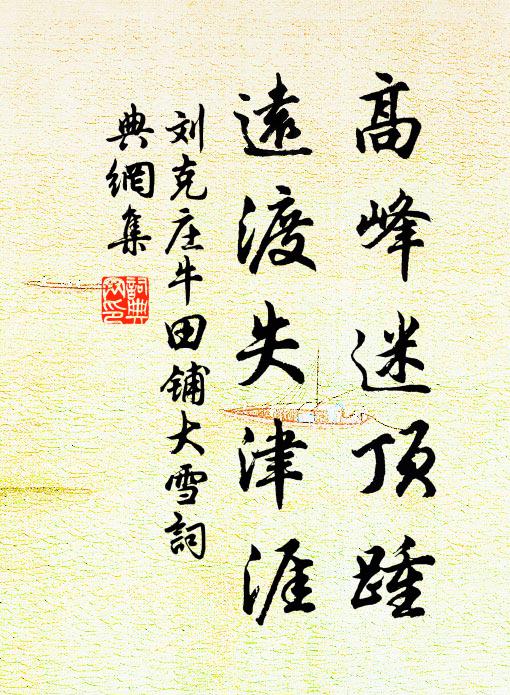 高峰迷顶踵
遠渡失津涯
刘克庄牛田铺大雪詞
典網集
詞典
网印